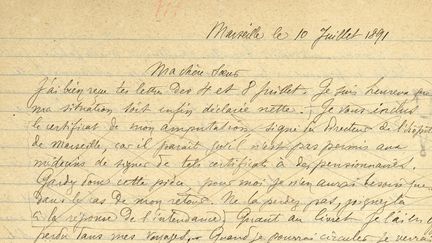 Marseille le 10 Juillet 1891
Ma chère Sœur
J'ai bien reçu tes lettres des 4 et 8 Juillet. Je suis heureux que
ma situation soit enfin déclarée nette.
Je vous inclus
le certificat de mon amputation signé du directeur de l'hôpital
de Marseille, car il paraît qu'il n'est pas permis aux
médecins de signer de tels certificats à des pensionnaires.
Gardez donc cette pièce pour moi je n'en aurai besoin que
dans le cas de mon retour. Ne la perdez pas, joignez-la
à la réponse de l'intendance. Quant au livret je l'ai
perdu dans mes voyages. Quand je pourrai circuler je verrai